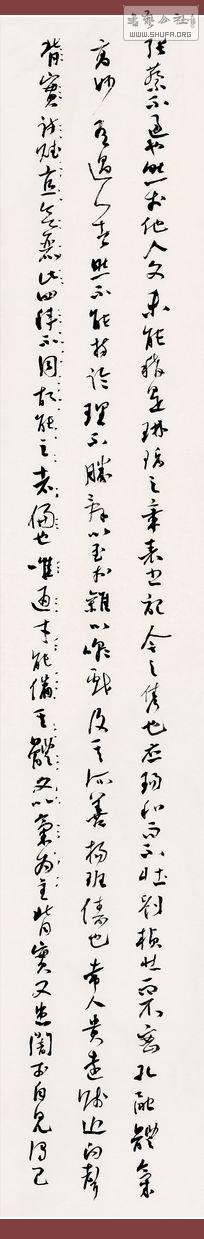 書藝公社
WWW.SHUFA.ORG
張蔡不過也然於他文未能稱是琳瑀之章表書記今之雋也應瑒和而不壯劉楨壯而不密孔融體氣
高妙有過人者然不能持論理不勝辭以至於雜以嘲戲及其所善楊班儔也常人貴遠賤近向聲
背實詩賦麗此四科不同故能之者偏也唯通才能備其體文以氣為主背實又患闇於自見謂己